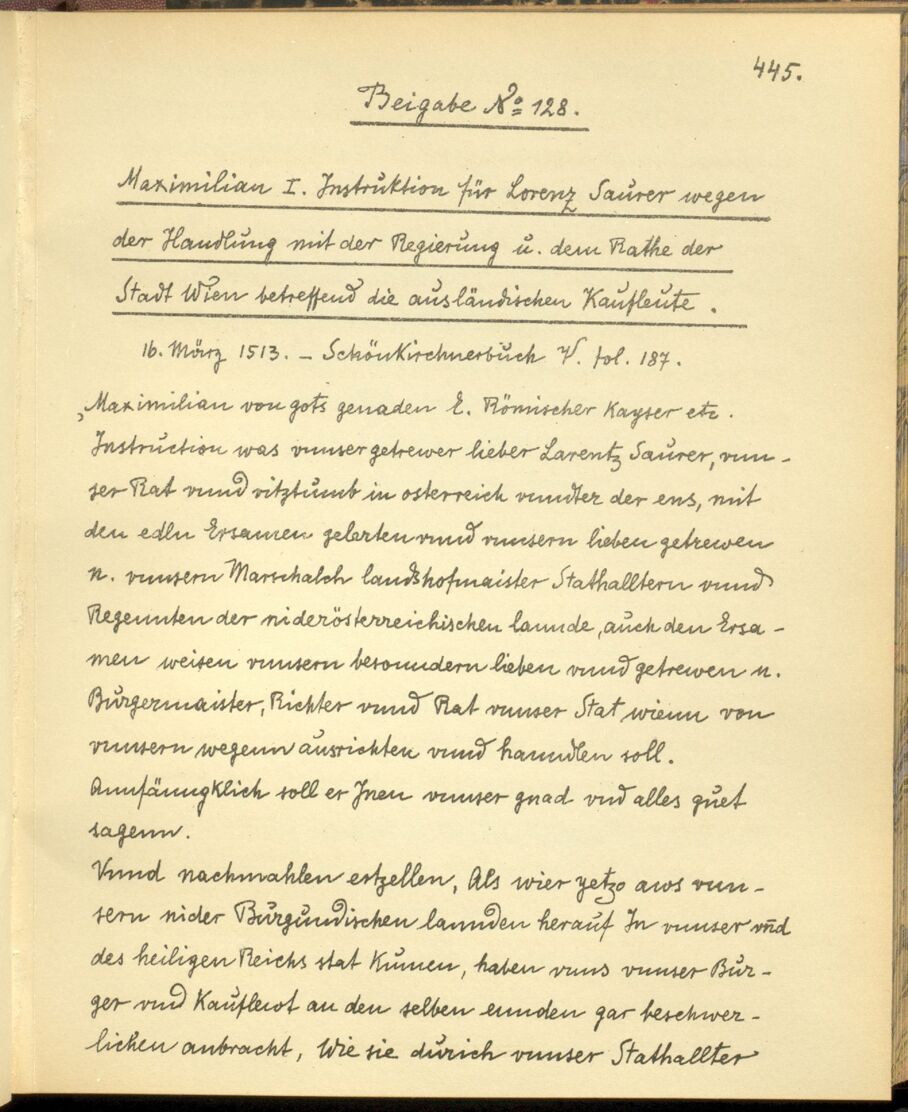 445.
Beigabe No 128.
Maximilian I. Instruktion für Lorenz Saurer wegen
der Handlung mit der Regierung u. dem Rathe der
Stadt Wien betreffend die ausländischen Kaufleute.
16. März 1513. – Schönkirchnerbuch V. fol. 187.
„Maximilian von gots genaden E. Römischer Kayser etc.
Instruction was vnnser getrewer lieber Larentz Saurer, vnn-
ser Rat vnnd vitztumb in osterreich vnndter der ens, mit
den edln Ersamen gelerten vnnd vnnsern lieben getrewen
n. vnnsern Marschalch landshofmaister Stathalltern vnnd
Regennten der niderösterreichischen lannde, auch den Ersa-
men weisen vnnsern besonndern lieben vnnd getrewen n.
Burgermaister, Richter vnnd Rat vnnser Stat wienn von
vnnsern wegenn ausrichten vnnd hanndlen soll.
Annfänngklich soll er Inen vnnser gnad vnd alles guet
sagenn.
Vnnd nachmahlen ertzellen, Als wier yetzo aws vnn-
sern nider Burgundischen lannden herauf In vnnser vnd
des heiligen Reichs stat kumen, haben vnns vnnser Bur-
ger vnd Kauflewt an den selben ennden gar beschwer-
lichen anbracht, Wie sie durich vnnser Stathallter